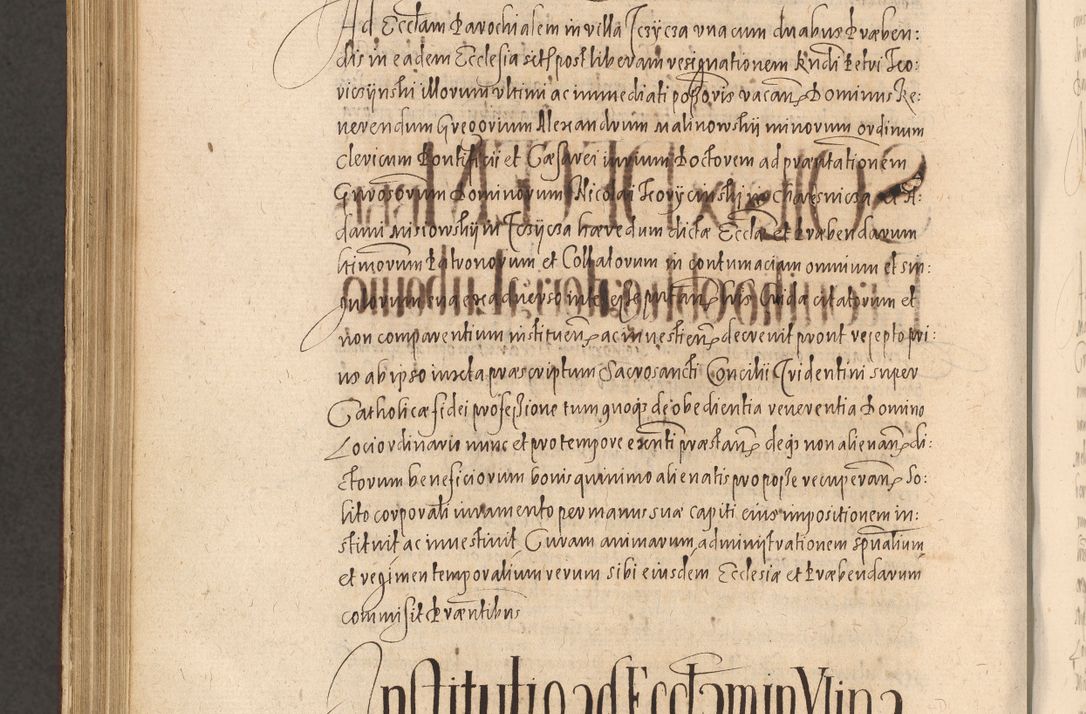 Ad Eccłam Parochialem in villa Jczÿcza vna cum duabus Præben:
dis in eadem Ecclesia post liberam resignationem Rndi Petri Teo:
illorum vltimi ac immediati poſſoris vacañ Dominus Re:
uerendum Gregorium Alexandrum Malinowskij minorum ordinum
Clericum Pontificij et Cæsarei iurium Doctorem ad præntationem
Gnrosorum Dominorum Nicolai
dami in Jczÿcza hæredum dictæ Eccłæ et Præbendarum
ltimorum Patronorum et Collatorum in contumaciam omnium et sin:
gulorum sua ex aduerso citatorum et
non comparentium instituen ac inuestien decreuit prout reiepto pri:
us ab ipso iuxta præscriptum Sacrosancti Concilii Tridentini super
Catholicæ fidei profeſſione tum quoqʒ de obedientia reuerentia Domino
Loci ordinario nunc et pro tempore exnti præstan deqʒ non alienan di:
ctorum beneficiorum bonis quinimo alienatis pro poſſe recuperan So:
lito corporali iuramento per manus suæ capiti eius impositionem in:
stituit ac inuestiuit Curam animarum administrationem spũalium
et regimen temporalium rerum sibi eiusdem Ecclesiæ et Præbendarum
commisit Præntibus
Institutio ad Eccłam in Vlina